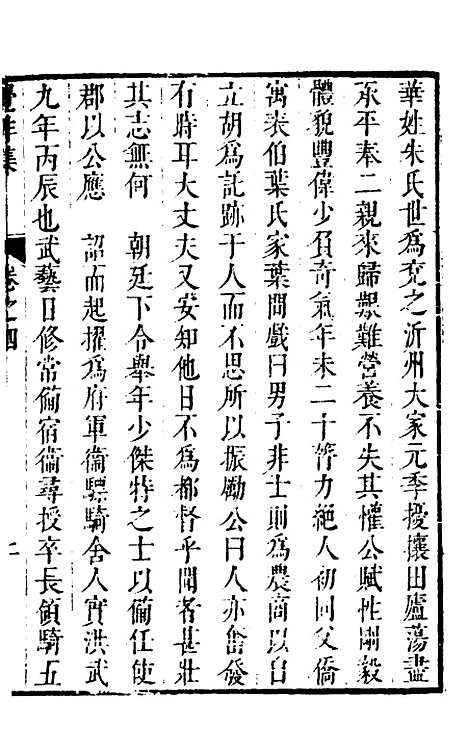 華姓朱氏世爲兖之沂州大家元季擾攘田廬蕩盡
承平奉二親來歸艱難營養不失其懽公賦性剛毅
體貌豐偉少負奇氣年未二十膂力絶人初同父僑
寓表伯葉氏家葉間戲曰男子非士則爲農商以自
立胡爲託跡于人而不思所以振勵公曰人亦奮發
有時耳大丈夫又安知他日不爲都督乎聞者甚壯
其志無何　朝廷下令舉年少傑特之士以備任使
郡以公應　詔而起擢爲府軍衞驃騎舍人實洪武
九年丙辰也武藝日修常備宿衞尋授卒長領騎五
覺非集　卷之四